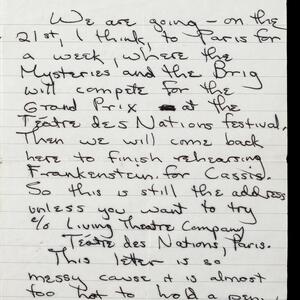 We are going - on the
21st, I think, to Paris for
a week, where the
Mysteries and the Brig
will compete for the
Grand Prix at the
Téâtre des Nations festival.
Then we will come back
here to finish rehearsing
Frankenstein for Cassis.
So this is still the address
unless you want to try
c/o Living Theatre Company
Téatre des Nations, Paris.
This letter is so
messy cause it is almost
too hot to hold a pen,